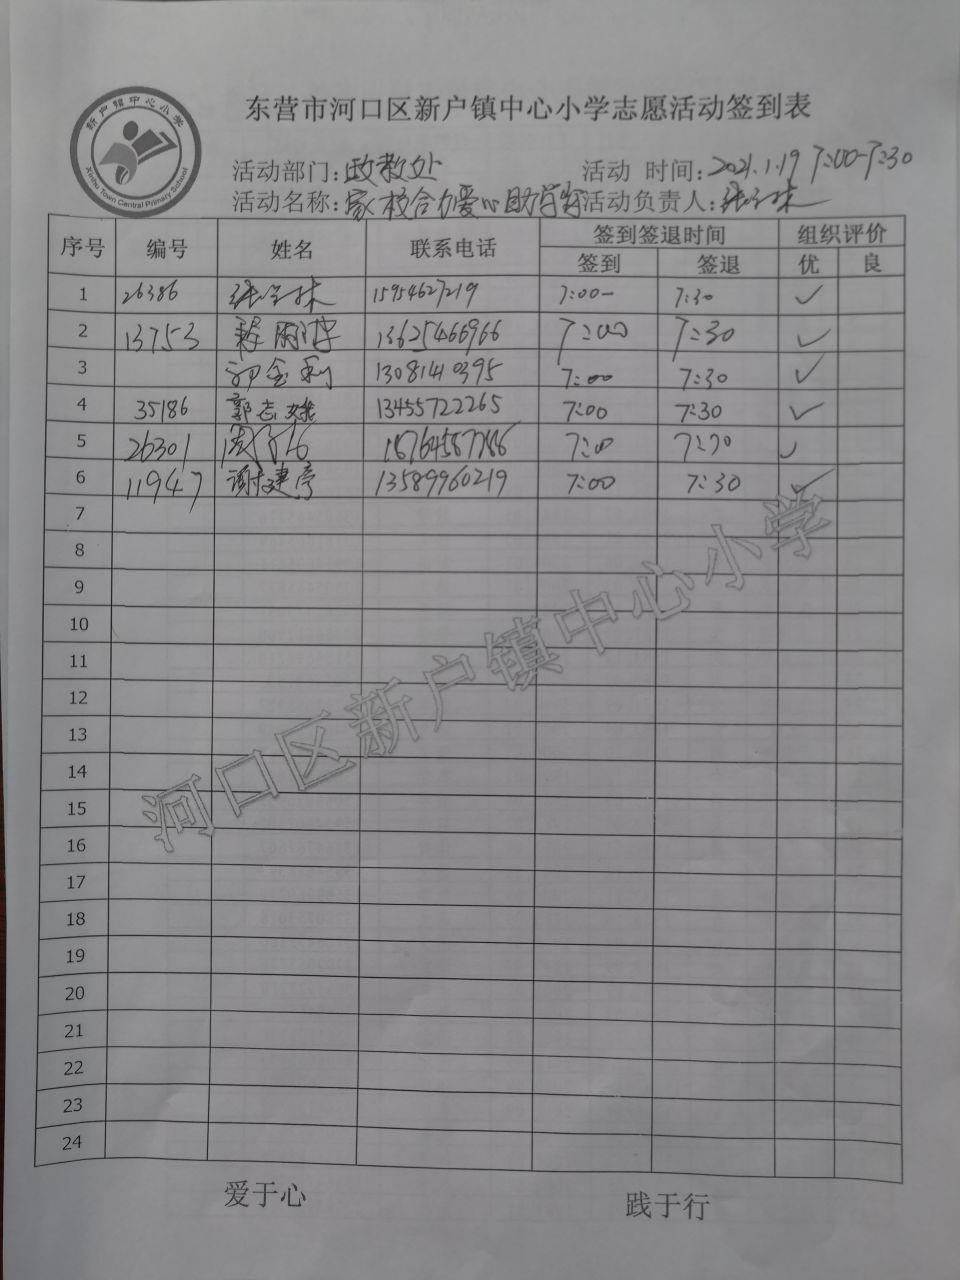 新户镇中心小学
Xinhu Town Central Primary School
东营市河口区新户镇中心小学志愿活动签到表
活动部门:政教处 活动 时间:2021.1.19 7:00-7:30
活动名称:家校合力爱心助学 活动负责人:
序号 编号 姓名 联系电话 签到签退时间 组织评价
签到 签退 优 良
1 26386 15954627219 7:00- 7:30 ✓
2 13753 13625466966 7:00 7:30 ✓
3 郭金利 13081410395 7:00 7:30 ✓
4 35186 郭志娥 13455722265 7:00 7:30 ✓
5 26301 7:00 ✓
6 11947 谢建亭 13589960219 7:00 7:30 ✓
7
8
9
10
11
12
13
14
15
16
17
18
19
20
21
22
23
24
河口区新户镇中心小学
爱于心 践于行